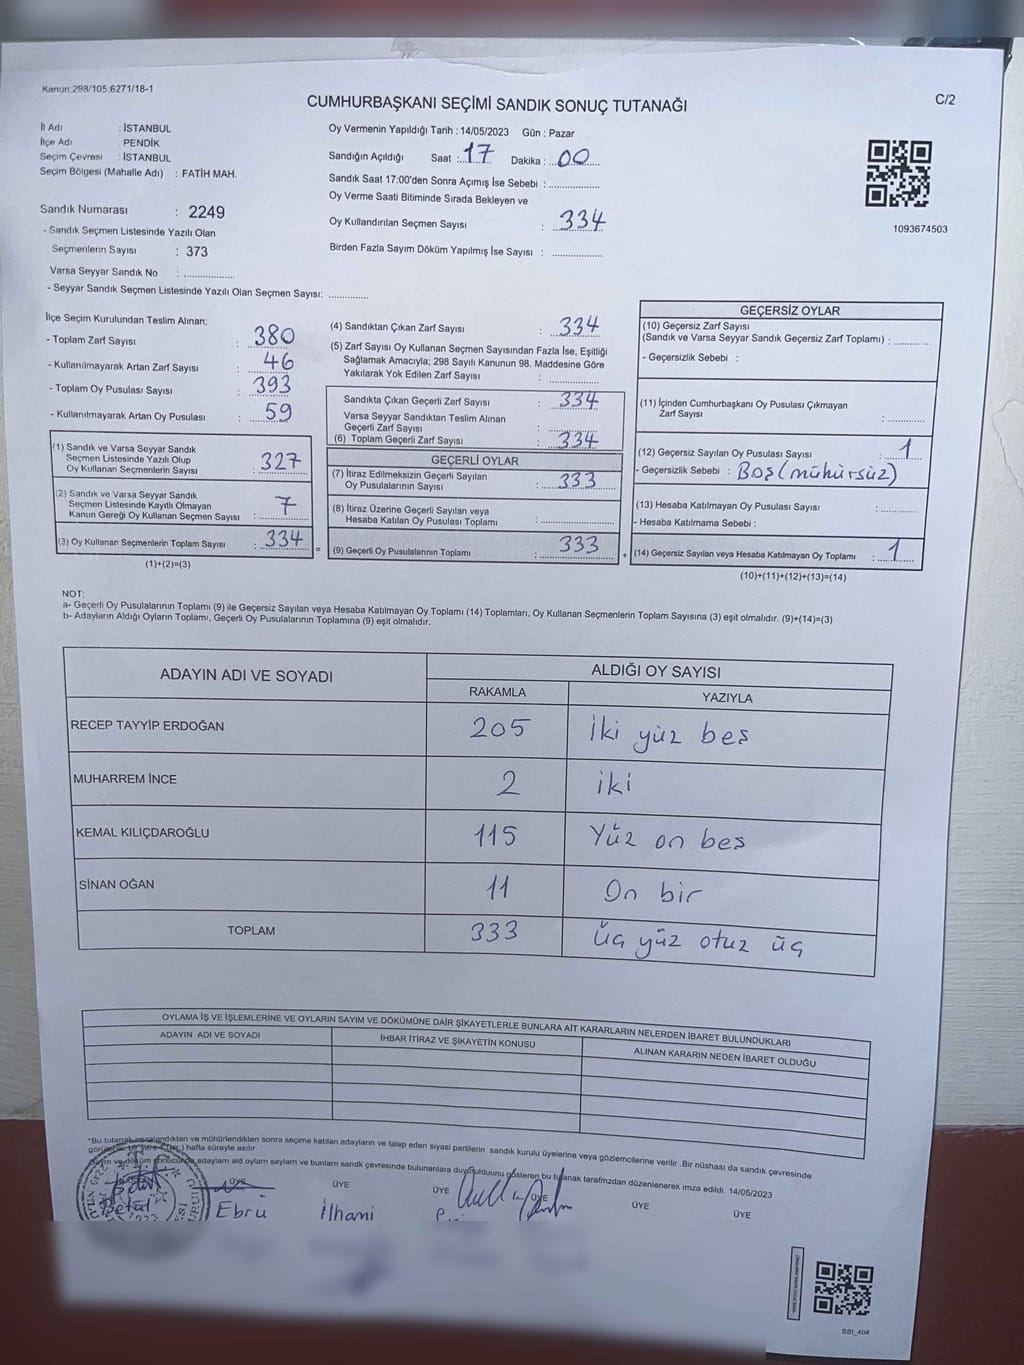 Kanun:298/105:6271/18-1
CUMHURBAŞKANI SEÇİMİ SANDIK SONUÇ TUTANAĞI
C/2
İl Adı : İSTANBUL
İlçe Adı : PENDİK
Seçim Çevresi : İSTANBUL
Seçim Bölgesi (Mahalle Adı) : FATİH MAH.
Sandık Numarası : 2249
- Sandık Seçmen Listesinde Yazılı Olan
Seçmenlerin Sayısı : 373
Varsa Seyyar Sandık No : ................
- Seyyar Sandık Seçmen Listesinde Yazılı Olan Seçmen Sayısı: .............
Oy Vermenin Yapıldığı Tarih : 14/05/2023 Gün : Pazar
Sandığın Açıldığı Saat : 17 Dakika : 00
Sandık Saat 17:00'den Sonra Açımış İse Sebebi : ................
Oy Verme Saati Bitiminde Sırada Bekleyen ve
Oy Kullandırılan Seçmen Sayısı : 334
Birden Fazla Sayım Döküm Yapılmış İse Sayısı : ................
1093674503
İlçe Seçim Kurulundan Teslim Alınan;
- Toplam Zarf Sayısı : 380
- Kullanılmayarak Artan Zarf Sayısı : 46
- Toplam Oy Pusulası Sayısı : 393
- Kullanılmayarak Artan Oy Pusulası : 59
(1) Sandık ve Varsa Seyyar Sandık
Seçmen Listesinde Yazılı Olup
Oy Kullanan Seçmenlerin Sayısı : 327
(2) Sandık ve Varsa Seyyar Sandık
Seçmen Listesinde Kayıtlı Olmayan
Kanun Gereği Oy Kullanan Seçmen Sayısı : 7
(3) Oy Kullanan Seçmenlerin Toplam Sayısı : 334
(1)+(2)=(3)
(4) Sandıktan Çıkan Zarf Sayısı : 334
(5) Zarf Sayısı Oy Kullanan Seçmen Sayısından Fazla İse, Eşitliği
Sağlamak Amacıyla; 298 Sayılı Kanunun 98. Maddesine Göre
Yakılarak Yok Edilen Zarf Sayısı : ................
Sandıkta Çıkan Geçerli Zarf Sayısı : 334
Varsa Seyyar Sandıktan Teslim Alınan
Geçerli Zarf Sayısı : ................
(6) Toplam Geçerli Zarf Sayısı : 334
GEÇERLİ OYLAR
(7) İtiraz Edilmeksizin Geçerli Sayılan
Oy Pusulalarının Sayısı : 333
(8) İtiraz Üzerine Geçerli Sayılan veya
Hesaba Katılan Oy Pusulası Toplamı : ................
=
(9) Geçerli Oy Pusulalarının Toplamı : 333
+
GEÇERSİZ OYLAR
(10) Geçersiz Zarf Sayısı
(Sandık ve Varsa Seyyar Sandık Geçersiz Zarf Toplamı) : ............
- Geçersizlik Sebebi :
(11) İçinden Cumhurbaşkanı Oy Pusulası Çıkmayan
Zarf Sayısı : ............
(12) Geçersiz Sayılan Oy Pusulası Sayısı : 1
- Geçersizlik Sebebi : Boş (mühürsüz)
(13) Hesaba Katılmayan Oy Pusulası Sayısı : ............
- Hesaba Katılmama Sebebi :
(14) Geçersiz Sayılan veya Hesaba Katılmayan Oy Toplamı : 1
(10)+(11)+(12)+(13)=(14)
NOT:
a- Geçerli Oy Pusulalarının Toplamı (9) ile Geçersiz Sayılan veya Hesaba Katılmayan Oy Toplamı (14) Toplamları, Oy Kullanan Seçmenlerin Toplam Sayısına (3) eşit olmalıdır. (9)+(14)=(3)
b- Adayların Aldığı Oyların Toplamı, Geçerli Oy Pusulalarının Toplamına (9) eşit olmalıdır.
ADAYIN ADI VE SOYADI
ALDIĞI OY SAYISI
RAKAMLA YAZIYLA
RECEP TAYYİP ERDOĞAN 205 İki yüz beş
MUHARREM İNCE 2 iki
KEMAL KILIÇDAROĞLU 115 Yüz on beş
SİNAN OĞAN 11 On bir
TOPLAM 333 Üç yüz otuz üç
OYLAMA İŞ VE İŞLEMLERİNE VE OYLARIN SAYIM VE DÖKÜMÜNE DAİR ŞİKAYETLERLE BUNLARA AİT KARARLARIN NELERDEN İBARET BULUNDUKLARI
ADAYIN ADI VE SOYADI İHBAR İTİRAZ VE ŞİKAYETİN KONUSU ALINAN KARARIN NEDEN İBARET OLDUĞU
*Bu tutanak imzalandıktan ve mühürlendikten sonra seçime katılan adayların ve talep eden siyasi partilerin sandık kurulu üyelerine veya gözlemcilerine verilir .Bir nüshası da sandık çevresinde
hafta süreyle asılır.
adayların aldı oyların sayların ve bunların sandk çevresinde bulunanlara duyrulduunu gösteren bu tutanak tarafmzdan düzenlenerek imza edildi. 14/05/2023
ÜYE ÜYE ÜYE ÜYE ÜYE ÜYE
Betül Ebru İlhami
SSI_404